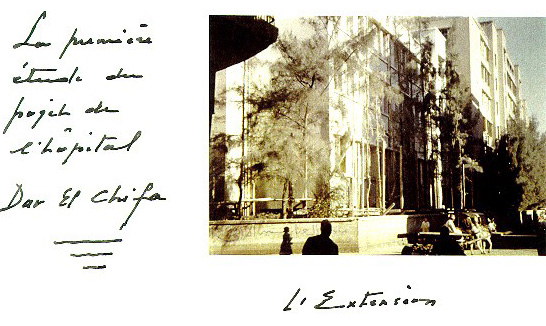 La première
étude du
projet de
l'hôpital
Dar El Chifa
L'Extension